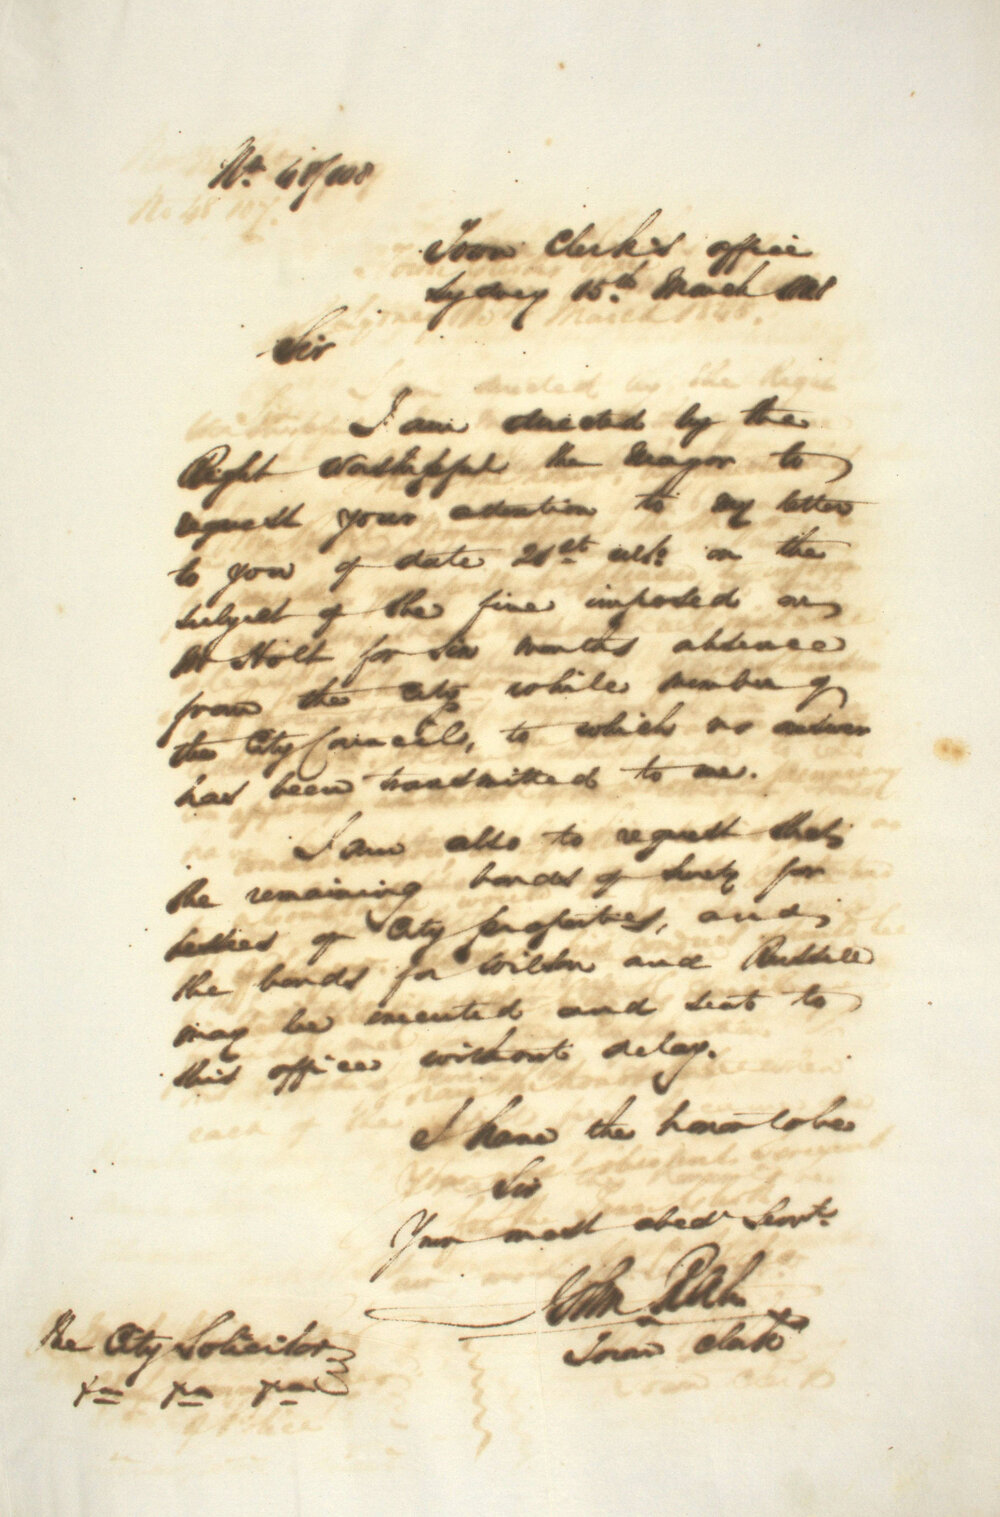 No. 48/108
Town Clerk's office
Sydney 15th March 1848
Sir
I am directed by the
Right Worshipful the Mayor to
request your attention to my letter
to you of date 21st ult. on the
subject of the fine imposed on
Mr Holt for six months absence
from the City while member of
the City Council, to which no answer
has been transmitted to me.
I am also to request that
the remaining bonds of surety for
lessees of City properties, and
the bonds for Wilson and Russell
may be executed and sent to
this office without delay.
I have the honor to be
Sir
Your most obedt Servt.
John Rae
Town Clerk
The City Solicitor